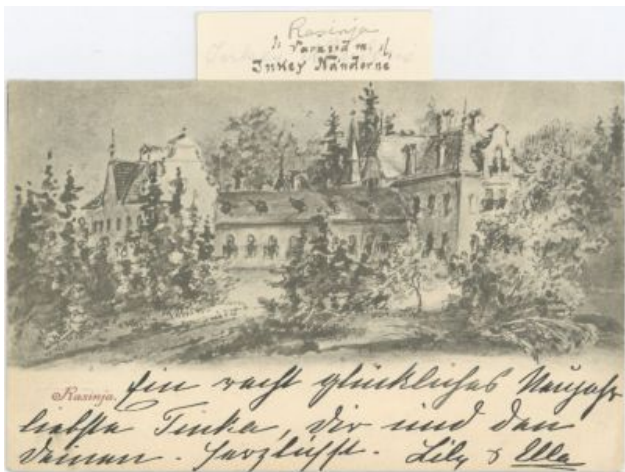 Rasinja
Varasd m.
Inkey Nándorné
Rasinja. Ein recht glückliches Neujahr
liebste Tinka, dir und den
Deinen. Herzlichst. Lily & Ella